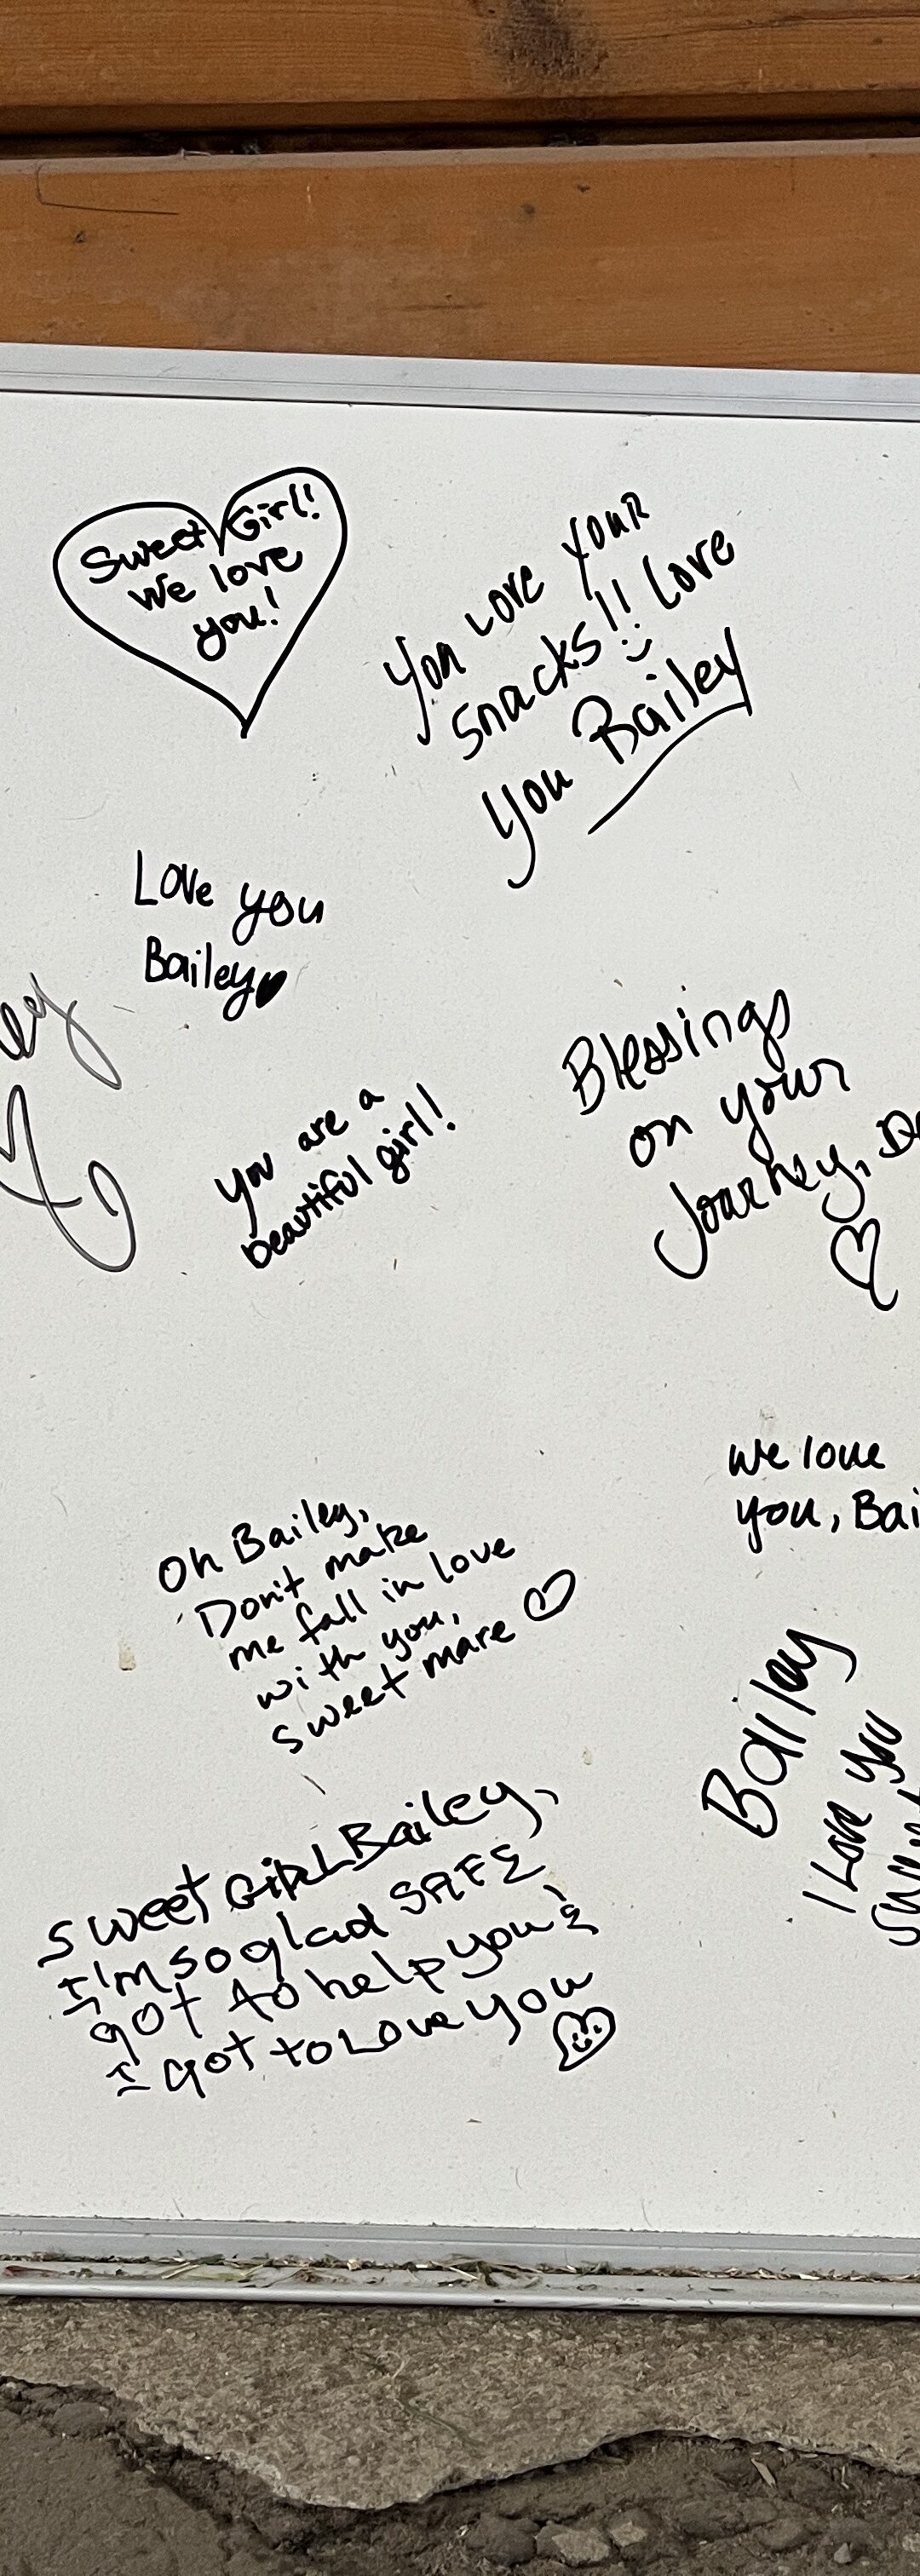 Sweet Girl!
We love
you!
You love your
snacks!! Love
you Bailey
Love you
Bailey
Blessings
on your
Journey,
you are a
beautiful girl!
we love
you, Bai
Oh Bailey,
Don't make
me fall in love
with you,
sweet mare
Bailey
I Love you
Sweet GIRL Bailey,
I'm so glad SAFE
got to help you &
I got to Love you